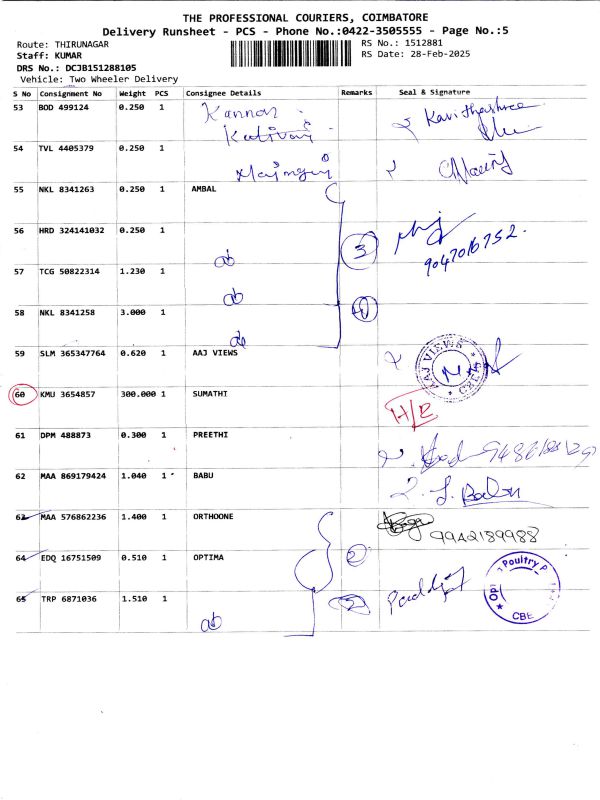 THE PROFESSIONAL COURIERS, COIMBATORE
Delivery Runsheet - PCS - Phone No.:0422-3505555 - Page No.:5
Route: THIRUNAGAR
RS No.: 1512881
Staff: KUMAR
RS Date: 28-Feb-2025
DRS No.: DCJB151288105
Vehicle: Two Wheeler Delivery
S No Consignment No Weight PCS Consignee Details Remarks Seal & Signature
53 BOD 499124 0.250 1 Kannan Kavithashree
54 TVL 4405379 0.250 1
55 NKL 8341263 0.250 1 AMBAL
56 HRD 324141032 0.250 1 do 3 9047016752.
57 TCG 50822314 1.230 1 do
58 NKL 8341258 3.000 1 do
59 SLM 365347764 0.620 1 AAJ VIEWS AAJ VIEWS CBE
60 KMU 3654857 300.000 1 SUMATHI H/E
61 DPM 488873 0.300 1 PREETHI
62 MAA 869179424 1.040 1 BABU Babu
63 MAA 576862236 1.400 1 ORTHOONE 9942189988
64 EDQ 16751509 0.510 1 OPTIMA 2 Poultry P
65 TRP 6871036 1.510 1 do 2 CBE